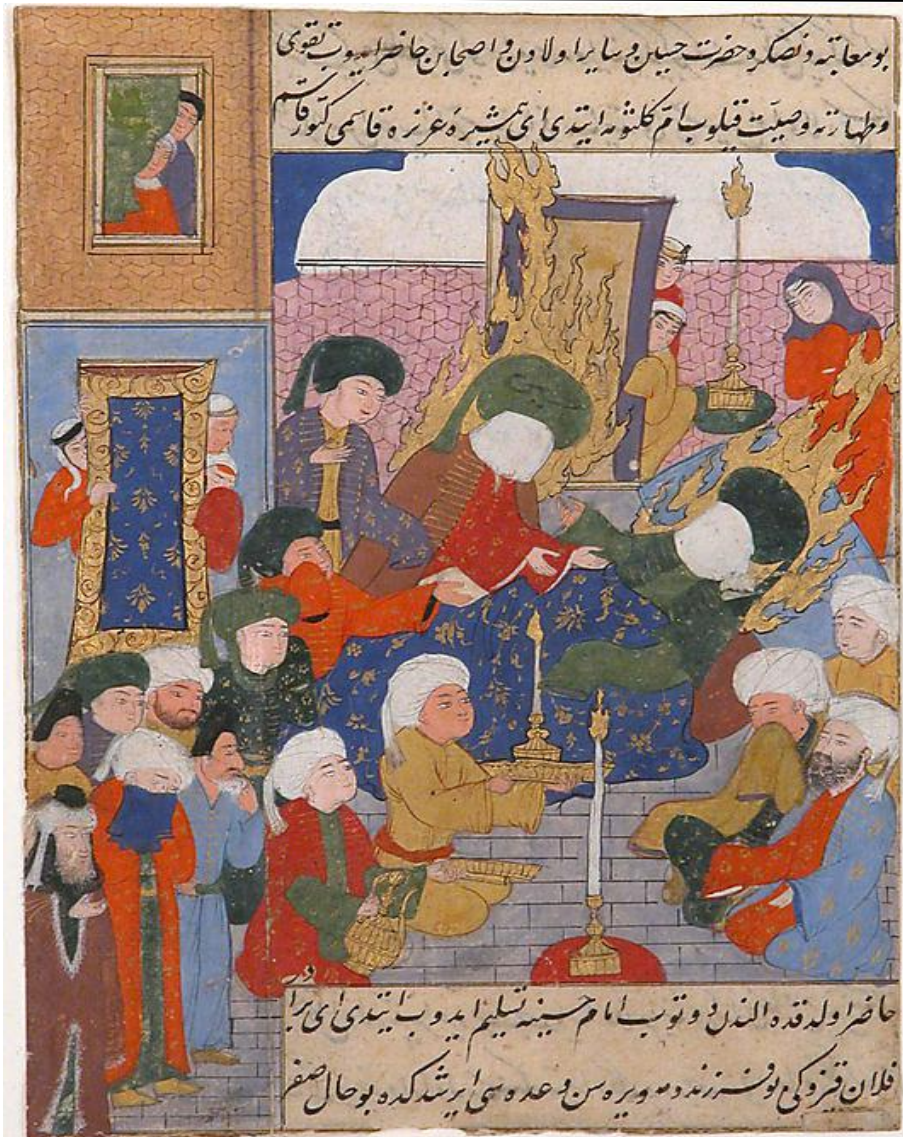 بو معاتبه دنصكره حضرت حسين و ساير اولادن و اصحابن حاضر ايدوب تقوى
و طهارته وصيت قيلوب ام كلثومه ايتدى اى همشيرهٔ عزيزه قاسمى كتور قاسم
حاضر اولدقده الندن دوتوب امام حسينه تسليم ايدوب ايتدى اى برادر
فلان قيزوكى بو فرزندمه ويره سن وعده سى ايرشدكده بو حال صفر